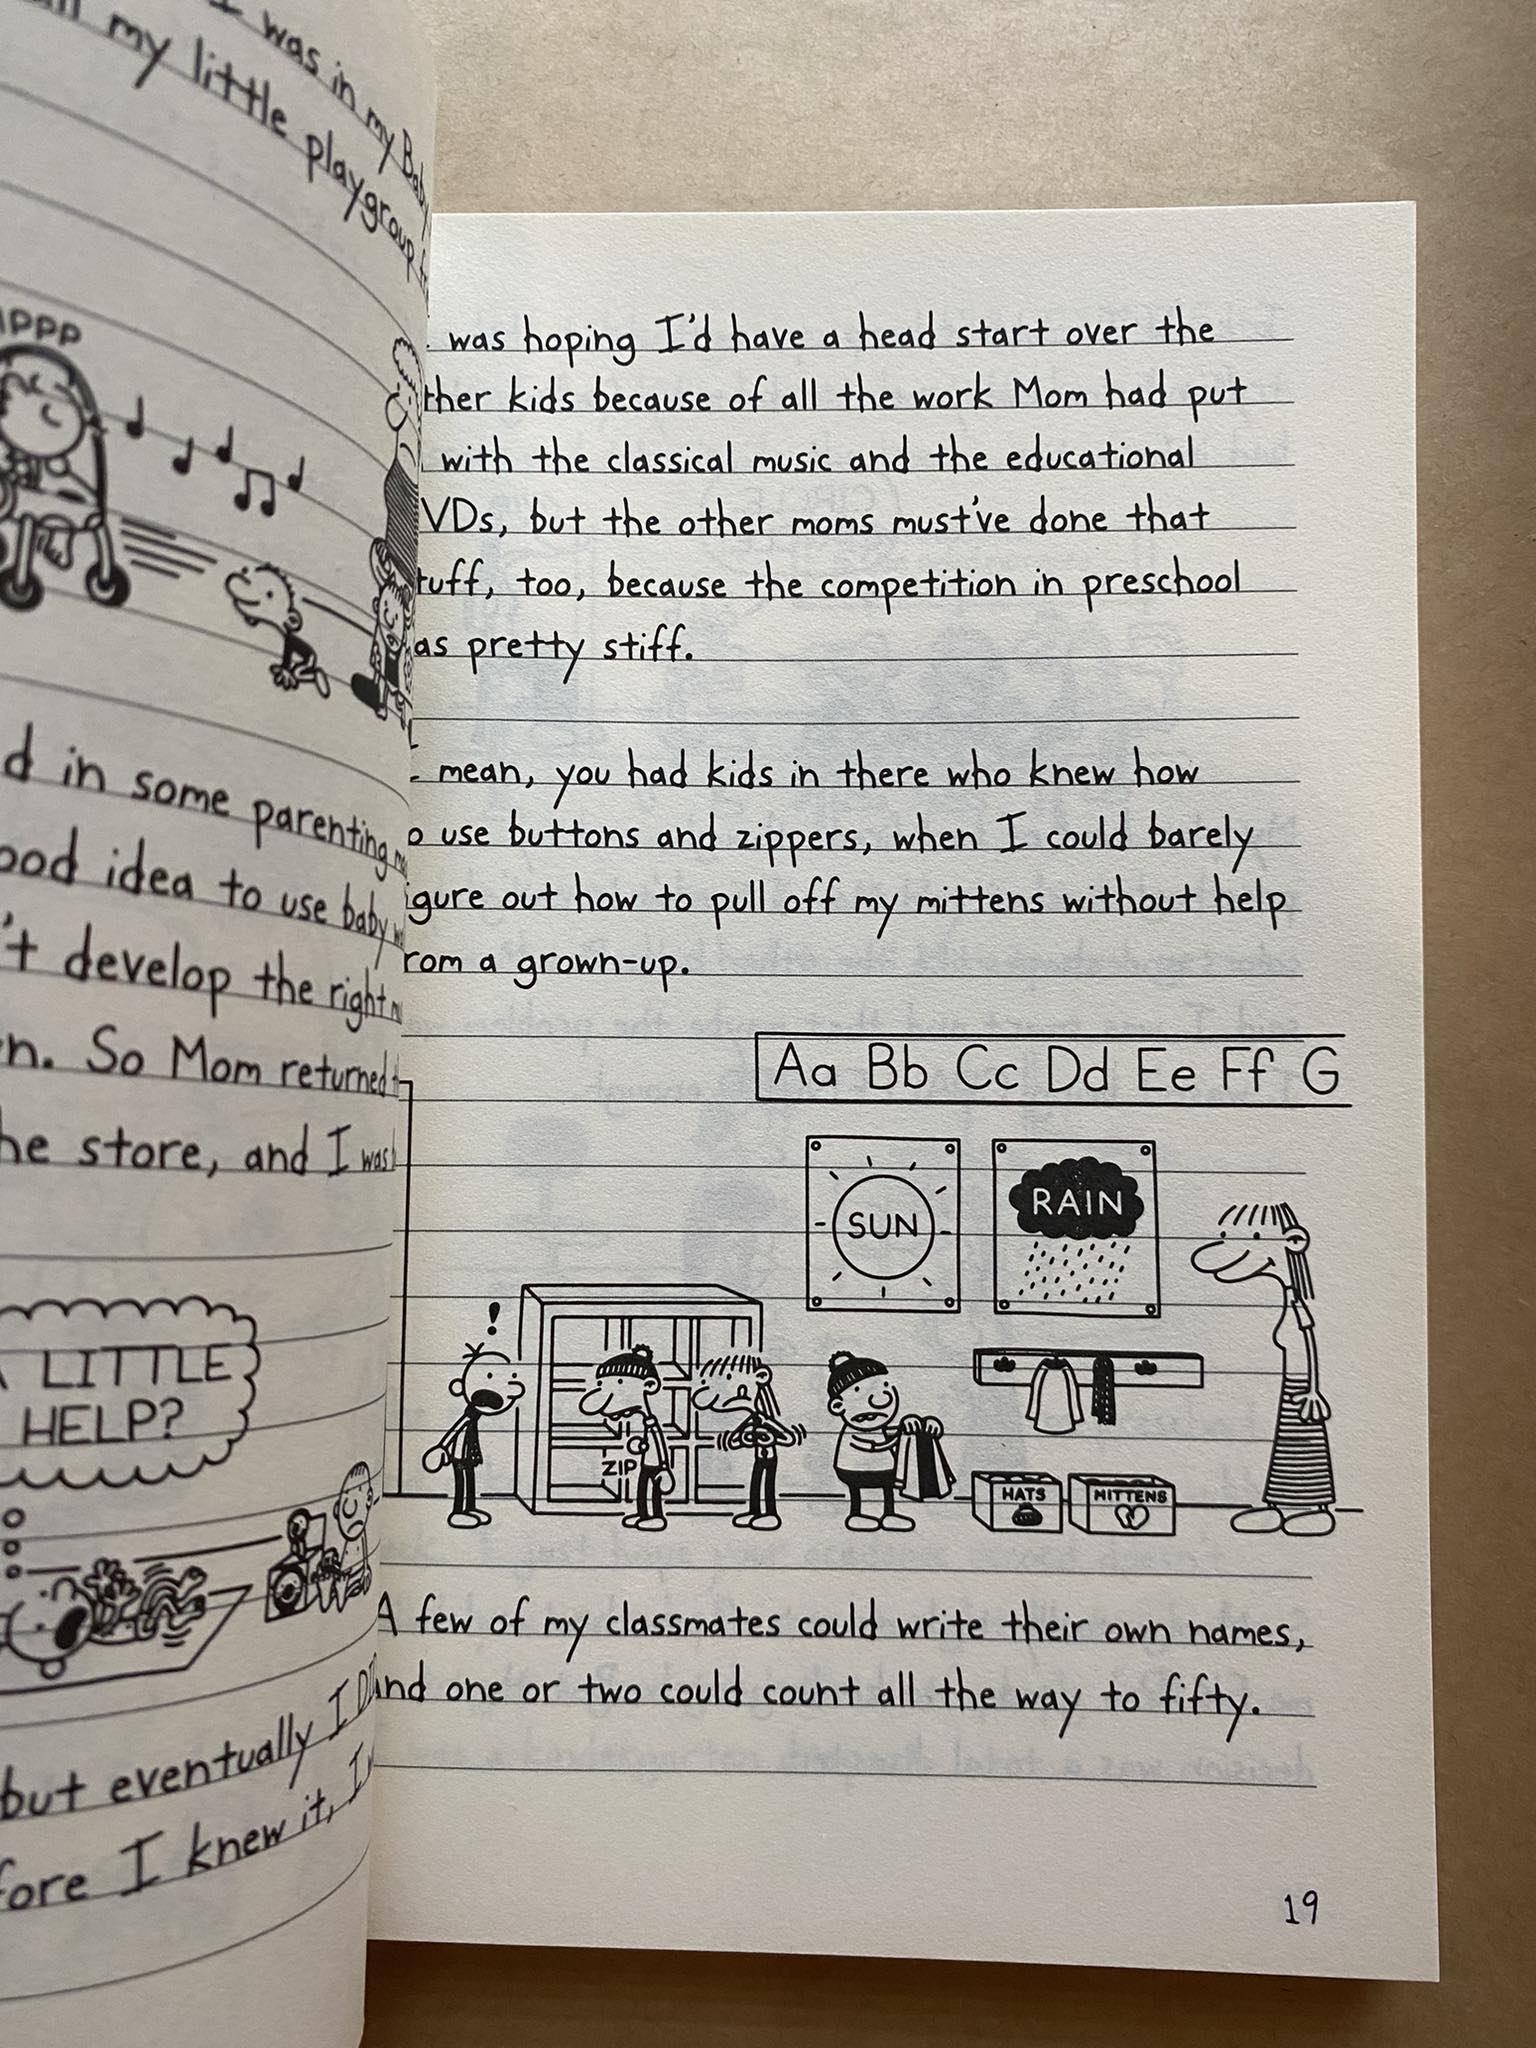 was in my Baby
my little playgroup
PPP
d in some parenting
ood idea to use baby
't develop the right
n. So Mom returned
he store, and I was
LITTLE
HELP?
but eventually I
fore I knew it, I
was hoping I'd have a head start over the
ther kids because of all the work Mom had put
with the classical music and the educational
VDs, but the other moms must've done that
tuff, too, because the competition in preschool
as pretty stiff.
mean, you had kids in there who knew how
o use buttons and zippers, when I could barely
igure out how to pull off my mittens without help
rom a grown-up.
Aa Bb Cc Dd Ee Ff G
SUN
RAIN
!
ZIP
HATS
MITTENS
A few of my classmates could write their own names,
and one or two could count all the way to fifty.
19